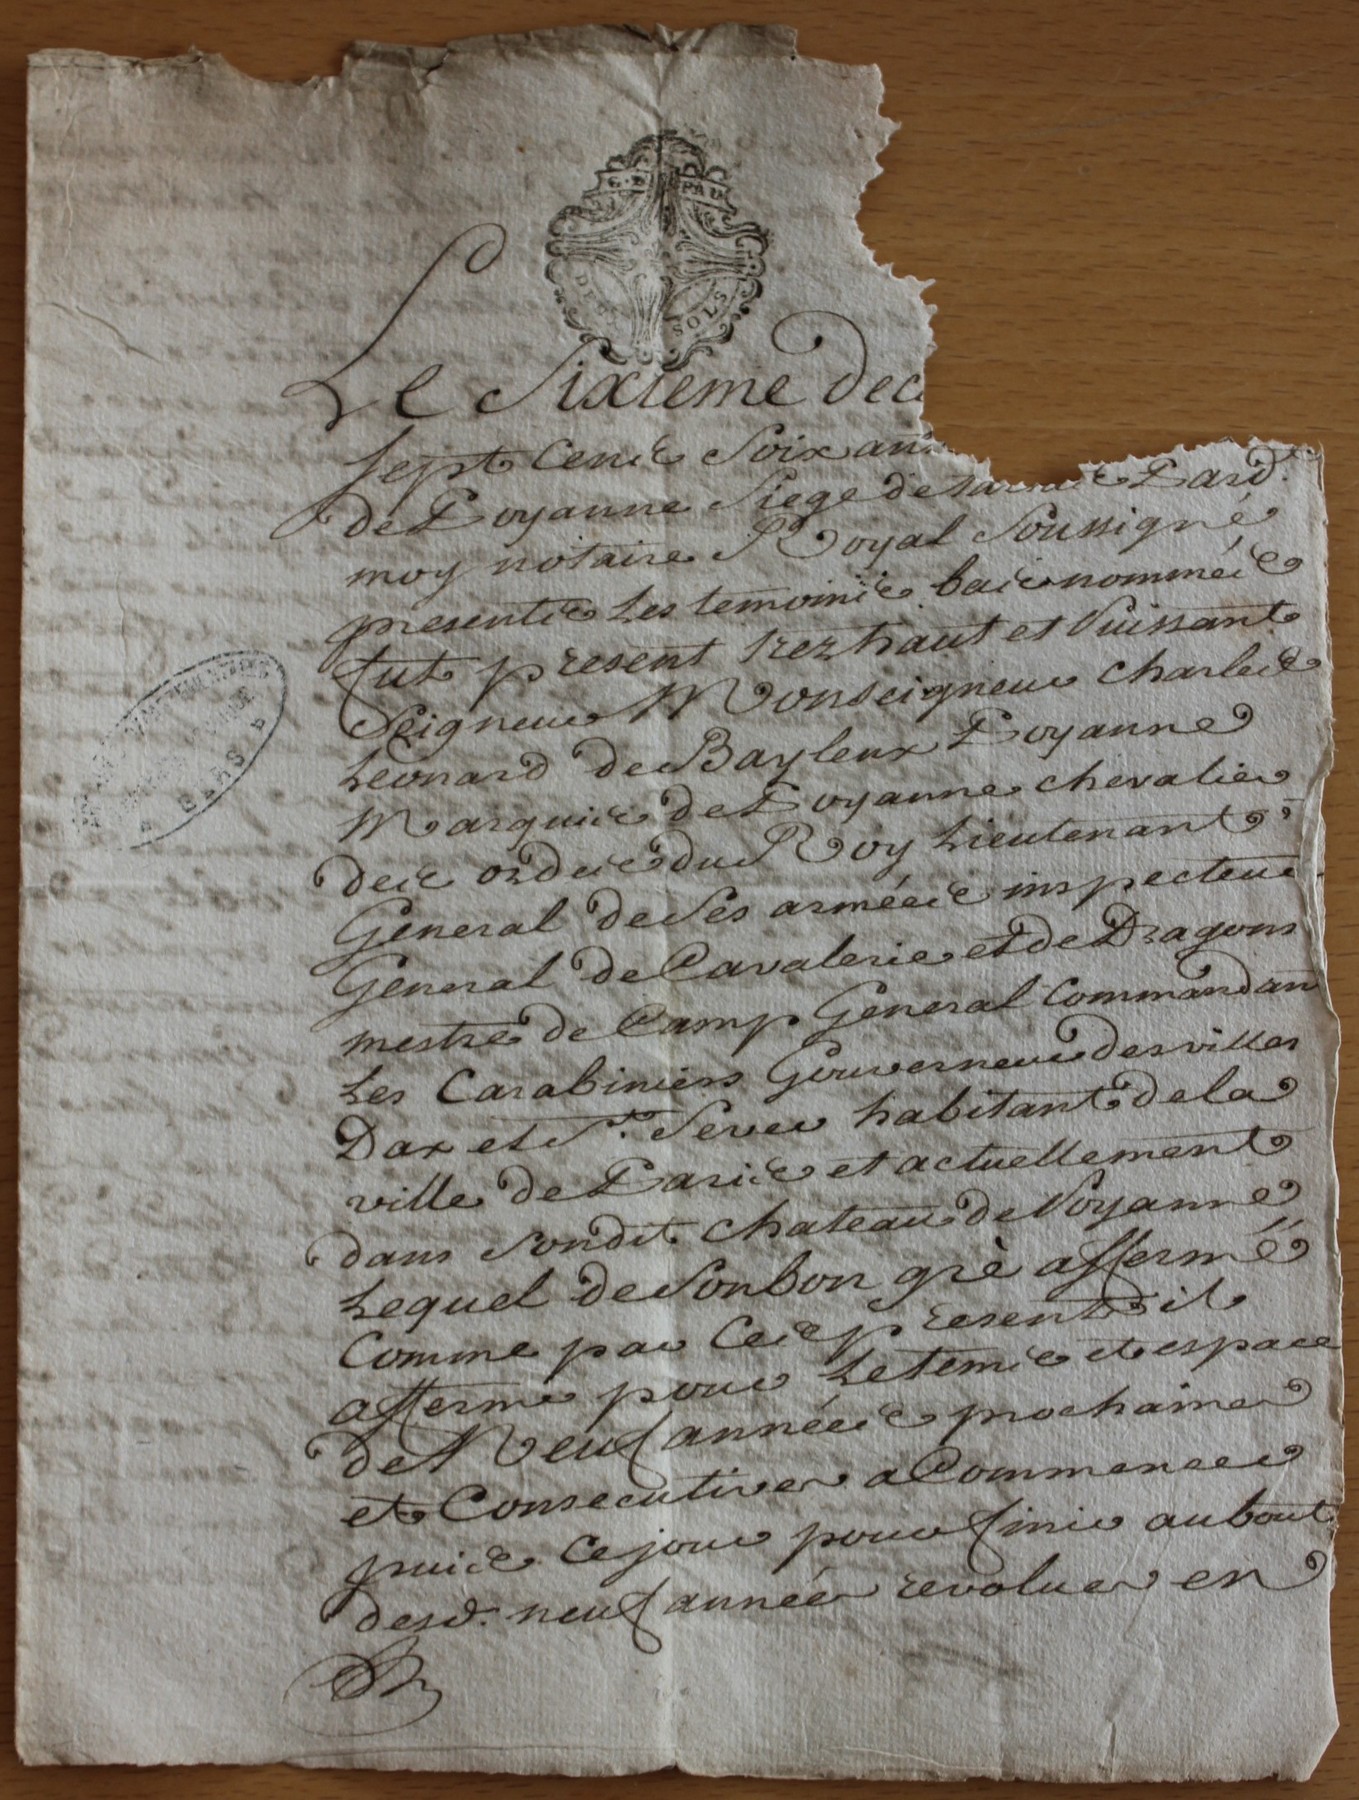 G. D. PAU
DE SOLS
Le Sixieme dece
sept Cens Soixan
de Poyanne Siege de Pard.
moy notaire Royal Soussigné
presents Les temoins bas nommés
fut present trez haut et Puissant
Seigneur Monseigneur Charles
Leonard de Baylenx Poyanne
Marquis de Poyanne chevalier
des ordres du Roy Lieutenant
General de Ses armées inspecteur
General de Cavalerie et de Dragons
mestre de Camp General Commandan
Les Carabiniers Gouverneur des villes
Dax et St. Sever habitant de la
ville de Paris et actuellement
dans Son dit chateau de Poyanne
Lequel de Son bon gré affermé
Comme par Ces presentes il
afferme pour Le tems et espace
de Neuf années prochaines
et Consecutives a Commencer
puis Ce jour pour finir au bout
desd. neuf années revolues en